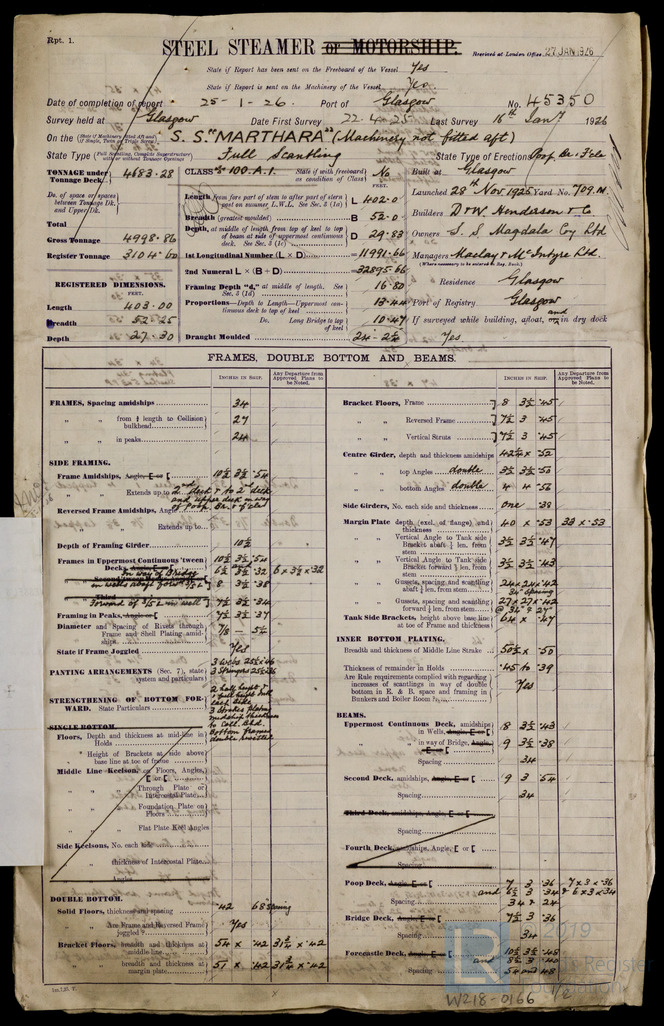 Rpt. 1.
STEEL STEAMER or MOTORSHIP.
Received at London Office 27 JAN 1926
State if Report has been sent on the Freeboard of the Vessel Yes
State if Report is sent on the Machinery of the Vessel Yes
Date of completion of report 25-1-26. Port of Glasgow No. 45350
Survey held at Glasgow Date First Survey 22.4.25 Last Survey 16th Jany 1926
On the S.S. "MARTHARA" (Machinery not fitted aft)
State Type Full Scantling State Type of Erections Poop, Br. & F'cle
TONNAGE under Tonnage Deck 4683.28
CLASS 100.A.1. State if with freeboard as condition of Class No
Built at Glasgow
Launched 28th Nov 1925 Yard No. 709.M
Do. of space or spaces between Tonnage Dk. and Upper Dk.
Length from fore part of stem to after part of stern post on summer L.W.L. See Sec. 3 (1a) L 402.0
Breadth (greatest moulded) B 52.0
Builders D & W. Henderson & Co
Total
Depth, at middle of length from top of keel to top of beam at side of uppermost continuous deck. See Sec. 3 (1c) D 29.83
Owners S. S. Magdala Coy Ltd
Gross Tonnage 4998.86
1st Longitudinal Number (L × D) = 11991.66
Managers Maclay & McIntyre Ltd.
Register Tonnage 3104.60
2nd Numeral L × (B + D) = 32895.66
Residence Glasgow
REGISTERED DIMENSIONS.
FEET.
Framing Depth "d," at middle of length. See Sec. 3 (1d) 16.80
Port of Registry Glasgow
Length 403.00
Proportions—Depth to Length—Uppermost continuous deck to top of keel 13.44
Breadth 52.25
Do. Long Bridge to top of keel 10.47
If surveyed while building, afloat, and in dry dock Yes
Depth 27.30
Draught Moulded 24-2½
FRAMES, DOUBLE BOTTOM AND BEAMS.
INCHES IN SHIP. Any Departure from Approved Plans to be Noted.
INCHES IN SHIP. Any Departure from Approved Plans to be Noted.
FRAMES, Spacing amidships 34
" " from ⅗ length to Collision bulkhead 27
" " in peaks 24
SIDE FRAMING.
Frame Amidships, Angle, E or [ 10½ 3½ .54
" " Extends up to 2nd deck & to 2nd deck and upper deck in way of Poop, Br. & F'cle
Reversed Frame Amidships, Angle
" " Extends up to
Depth of Framing Girder 10½
Frames in Uppermost Continuous 'tween Decks, Angle, E or [ 10½ 3½ .54
in way of Bridge 6½ 3½ .32 6 × 3½ × .32
in wells abaft for'd 3/5 L 8 3½ .38
Third
Forward of 3/5 L in well 7½ 3½ .34
Framing in Peaks, Angle or [ 7½ 3½ .37
Diameter and Spacing of Rivets through Frame and Shell Plating amidships 7/8 — 5¼
State if Frame Joggled Yes
PANTING ARRANGEMENTS (Sec. 7), state system and particulars 3 Webs 25½ × .46 3 Stringers 25½ × .36
STRENGTHENING OF BOTTOM FORWARD. State Particulars
SINGLE BOTTOM.
Floors, Depth and thickness at mid-line in Holds
" Height of Brackets at side above base line at toe of frame
Middle Line Keelson, on Floors, Angles, E or [
" " Through Plate or Intercostal Plate
" " Foundation Plate on Floors
" " Flat Plate Keel Angles
Side Keelsons, No. each side
" " thickness of Intercostal Plate
" " Angles
DOUBLE BOTTOM.
Solid Floors, thickness and spacing .42 68 Spacing
" " Are Frame and Reversed Frame joggled? Yes
Bracket Floors, breadth and thickness at middle line 54 × .42 31½ × .42
" " breadth and thickness at margin plate 51 × .42 31¾ × .42
Bracket Floors, Frame 8 3½ .45
" " Reversed Frame 7½ 3 .45
" " Vertical Struts 7½ 3 .45
Centre Girder, depth and thickness amidships 42½ × .52
" " top Angles double 3½ 3½ .50
" " bottom Angles double 4 4 .56
Side Girders, No. each side and thickness One .38
Margin Plate depth (excl. of flange) and thickness 40 × .53 33 × .53
" " Vertical Angle to Tank side Bracket abaft ¼ len. from stem 3½ 3½ .47
" " Vertical Angle to Tank side Bracket forward ¼ len. from stem 3½ 3½ .43
" " Gussets, spacing and scantling abaft ¼ len. from stem 24 × 24 × .42 34 Spacing
" " Gussets, spacing and scantling forward ¼ len. from stem 27 × 27 × .42 @ 34 & 27
Tank Side Brackets, height above base line at toe of Frame and thickness 64 × .47
INNER BOTTOM PLATING.
Breadth and thickness of Middle Line Strake 50½ × .50
Thickness of remainder in Holds .45 to .39
Are Rule requirements complied with regarding increases of scantlings in way of double bottom in E. & B. space and framing in Bunkers and Boiler Room? Yes
BEAMS.
Uppermost Continuous Deck, amidships in Wells, Angle, E or [ 8 3½ .43
" " in way of Bridge, Angle, E or [ 9 3½ .38
Spacing 34
Second Deck, amidships, Angle, E or [ 9 3 .54
Spacing 34
Third Deck, amidships, Angle, E or [
Spacing
Fourth Deck, amidships, Angle, E or [
Spacing
Poop Deck, Angle, E or [ 7 3 .36 and 6½ 3 .34 7 × 3 × .36 & 6 × 3 × .34
Spacing 34 & 24
Bridge Deck, Angle, E or [ 7½ 3 .36
Spacing 34
Forecastle Deck, Angle, E or [ 10½ 3½ .48 and 8½ 3 .40
Spacing 54 and 48
© 2019
Lloyd's Register
Foundation
W218-0166 1/2